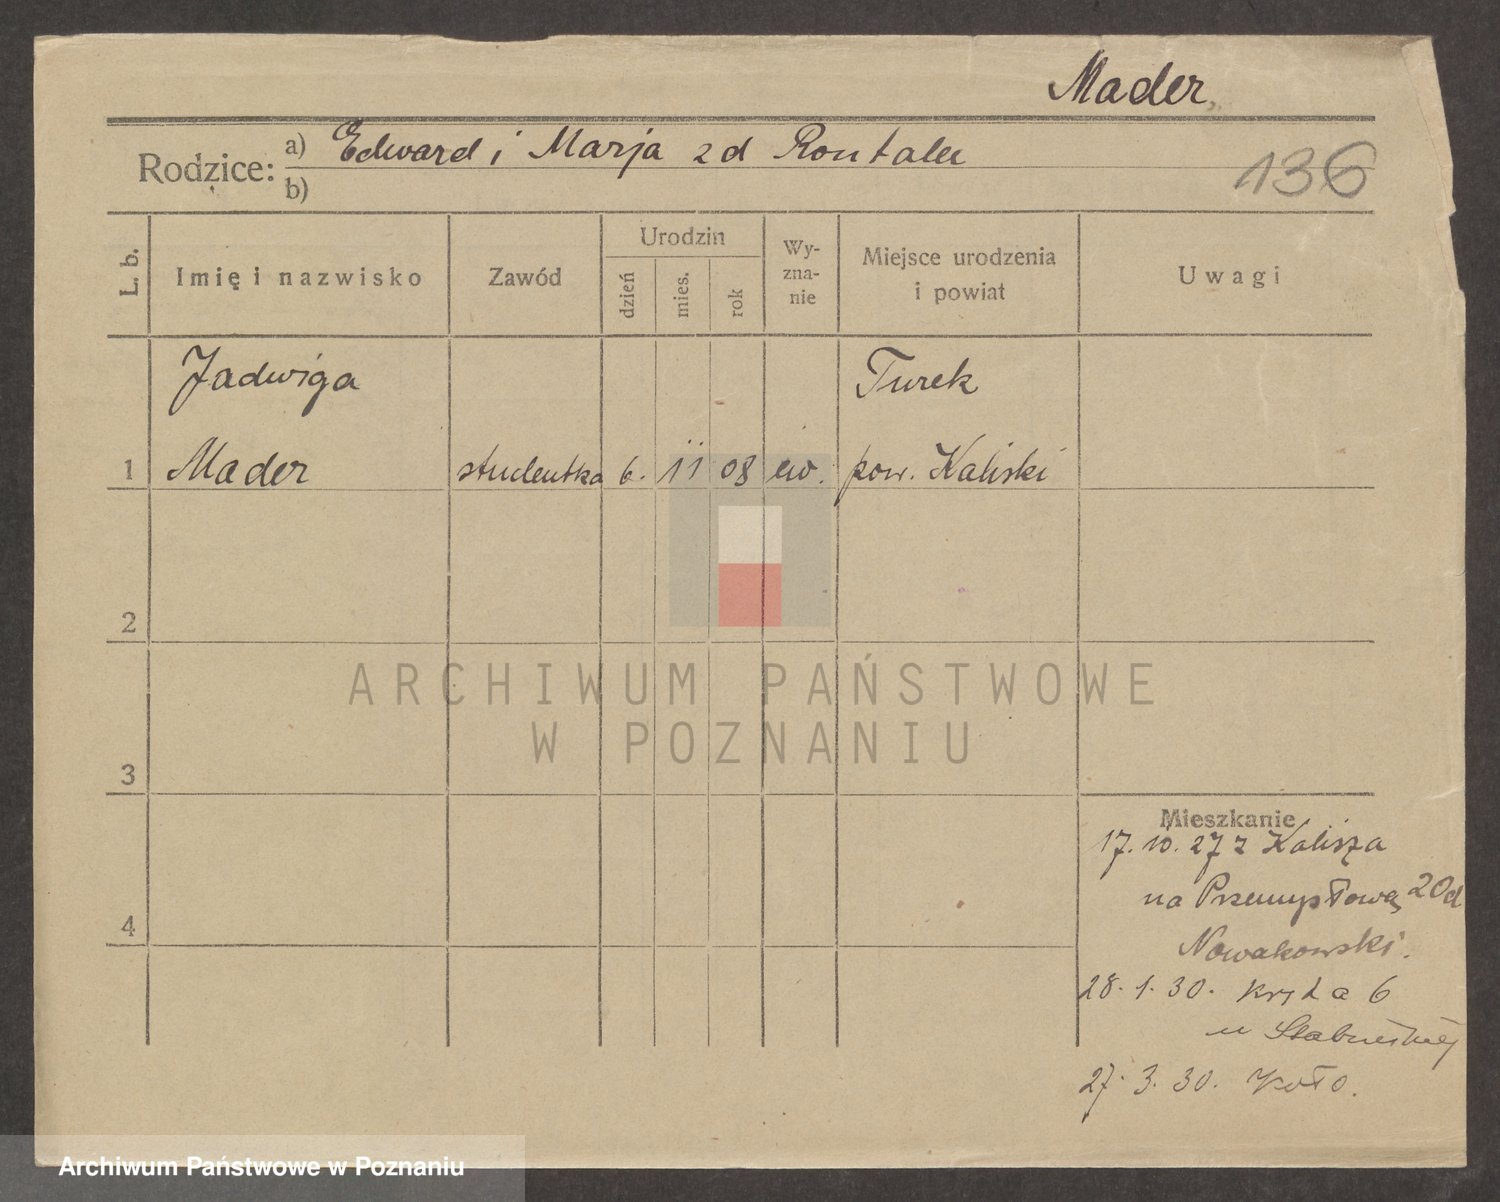 Mader
Rodzice: a) Edward i Marja zd Rontaler
b)
136
L. b.
Imię i nazwisko
Zawód
Urodzin
dzień
mies.
rok
Wy-
zna-
nie
Miejsce urodzenia
i powiat
Uwagi
Jadwiga
Turek
1 Mader studentka 6. 11 08 ew. pow. Kaliski
2
3
4
Mieszkanie
17. 10. 27 z Kalisza
na Przemysłową 20d
Nowakowski.
28. 1. 30. Kręta 6
u
27. 3. 30. Koło.
ARCHIWUM PAŃSTWOWE
W POZNANIU
Archiwum Państwowe w Poznaniu